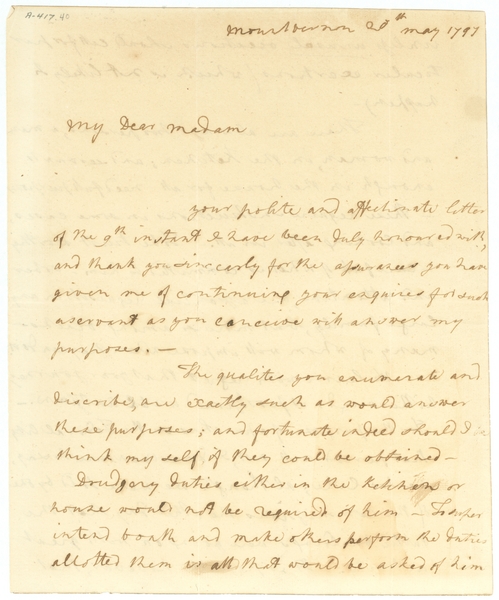 A-417.40
Mount vernon 20th may 1797
My Dear madam
your polite and affectinate letter
of the 9th instant I have been duly honoured with,
and thank you sincearly for the assurances you have
given me of continuing your enquires for such
a servant as you conceive will answer my
purposes. —
The qualites you enumerate and
discribe, are exactly such as would answer
these purposes; and fortunate indeed should I
think my self if they could be obtained —
Drudgery duties either in the Kitchen or
house would not be required of him — To super
intend boath and make others perform the duties
allotted them is all that would be asked of him